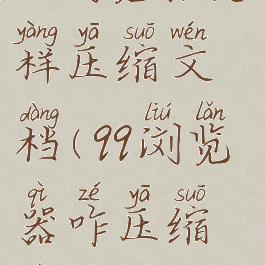 yàng yā suō wén
样压缩文
dàng liú lǎn
档(99浏览
qì zé yā suō
器咋压缩